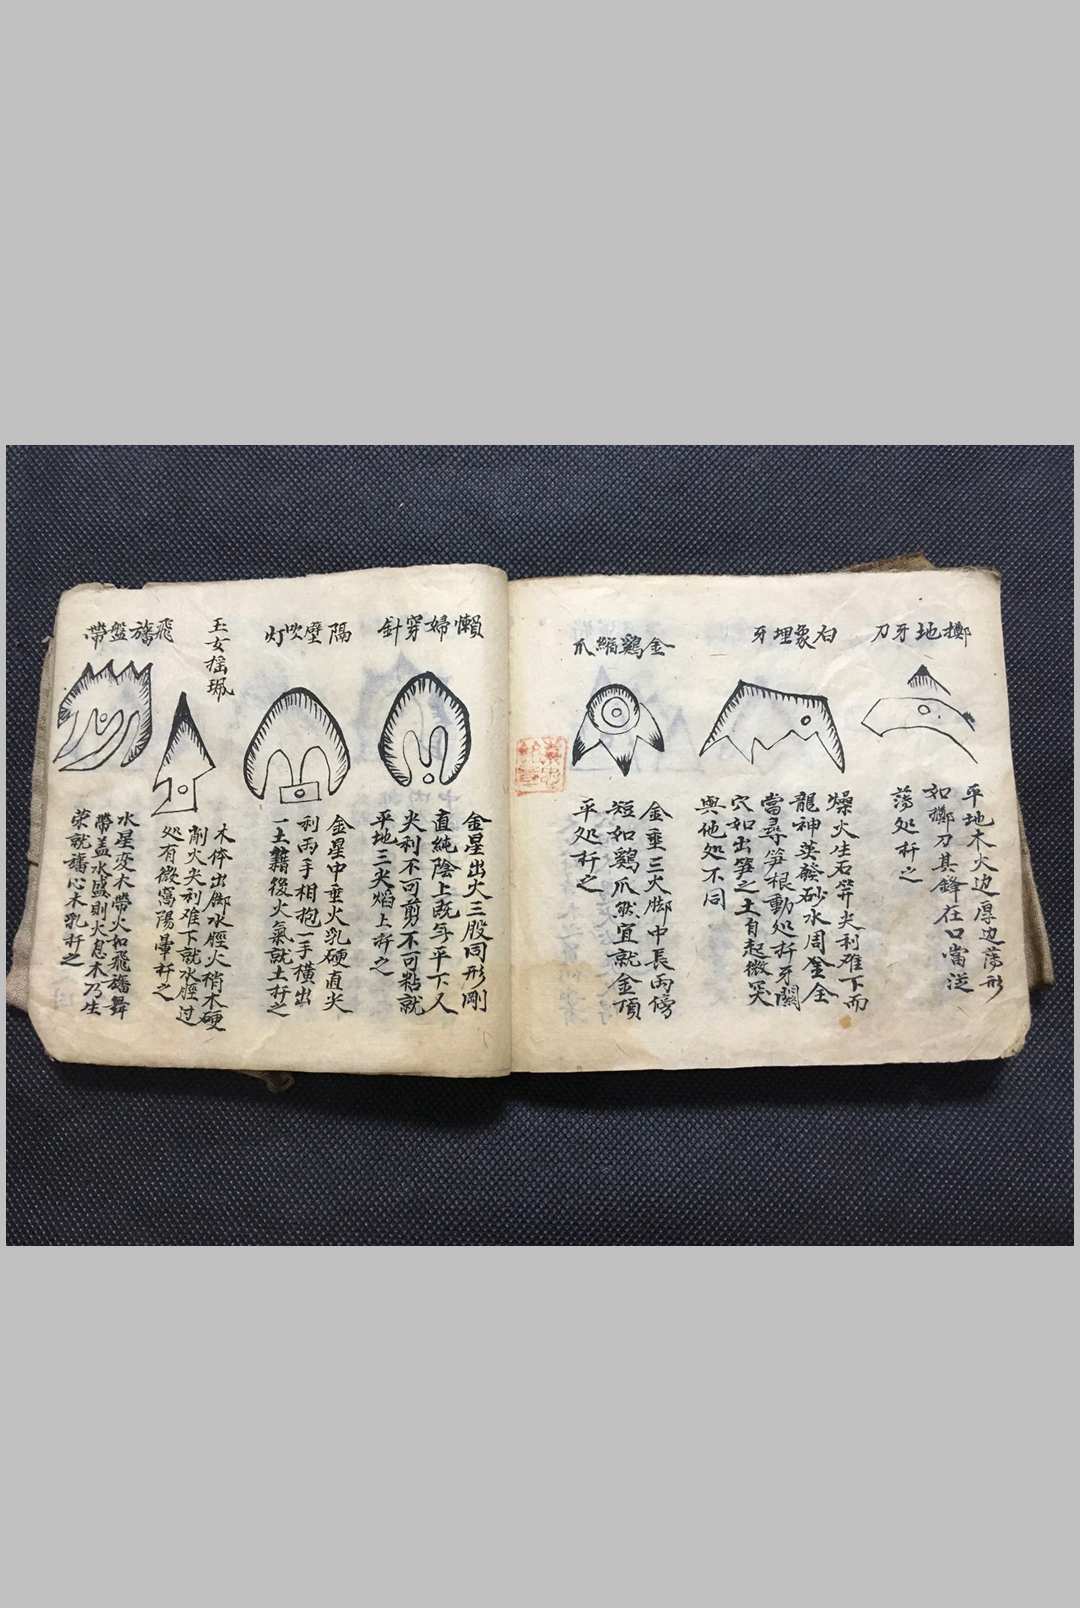 擲地牙刀
平地木火边厚边蕩形
如擲刀其鋒在口當逆
蕩处扦之
白象埋牙
燥火生石笋尖利难下而
龍神英
砂水周全
當尋笋根動处扦牙關
穴如出笋之土自起微突
與他处不同
金鷄縮爪
金垂三火脚中長兩傍
短如鷄爪然宜就金頂
平处扦之
懶婦穿針
金星出火三股同形剛
直純陰上既
平下又
尖利不可剪不可點就
平地三火焰上扦之
隔壁吹灯
金星中垂火乳硬直尖
利兩手相抱一手横出
一土藉後火氣就土扦之
玉女搖珮
木体出脚水脛火梢木硬
削火尖利难下就水脛过
处有微窩陽暈扦之
飛旛盤帶
水星变木帶火如飛旛舞
帶盖水盛則火息木乃生
荣就旛心木乳扦之